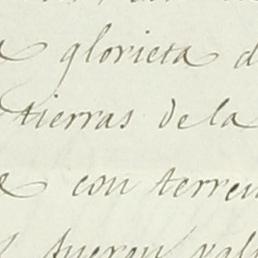 a glorieta d
tierras de la
a con terren
fueron val